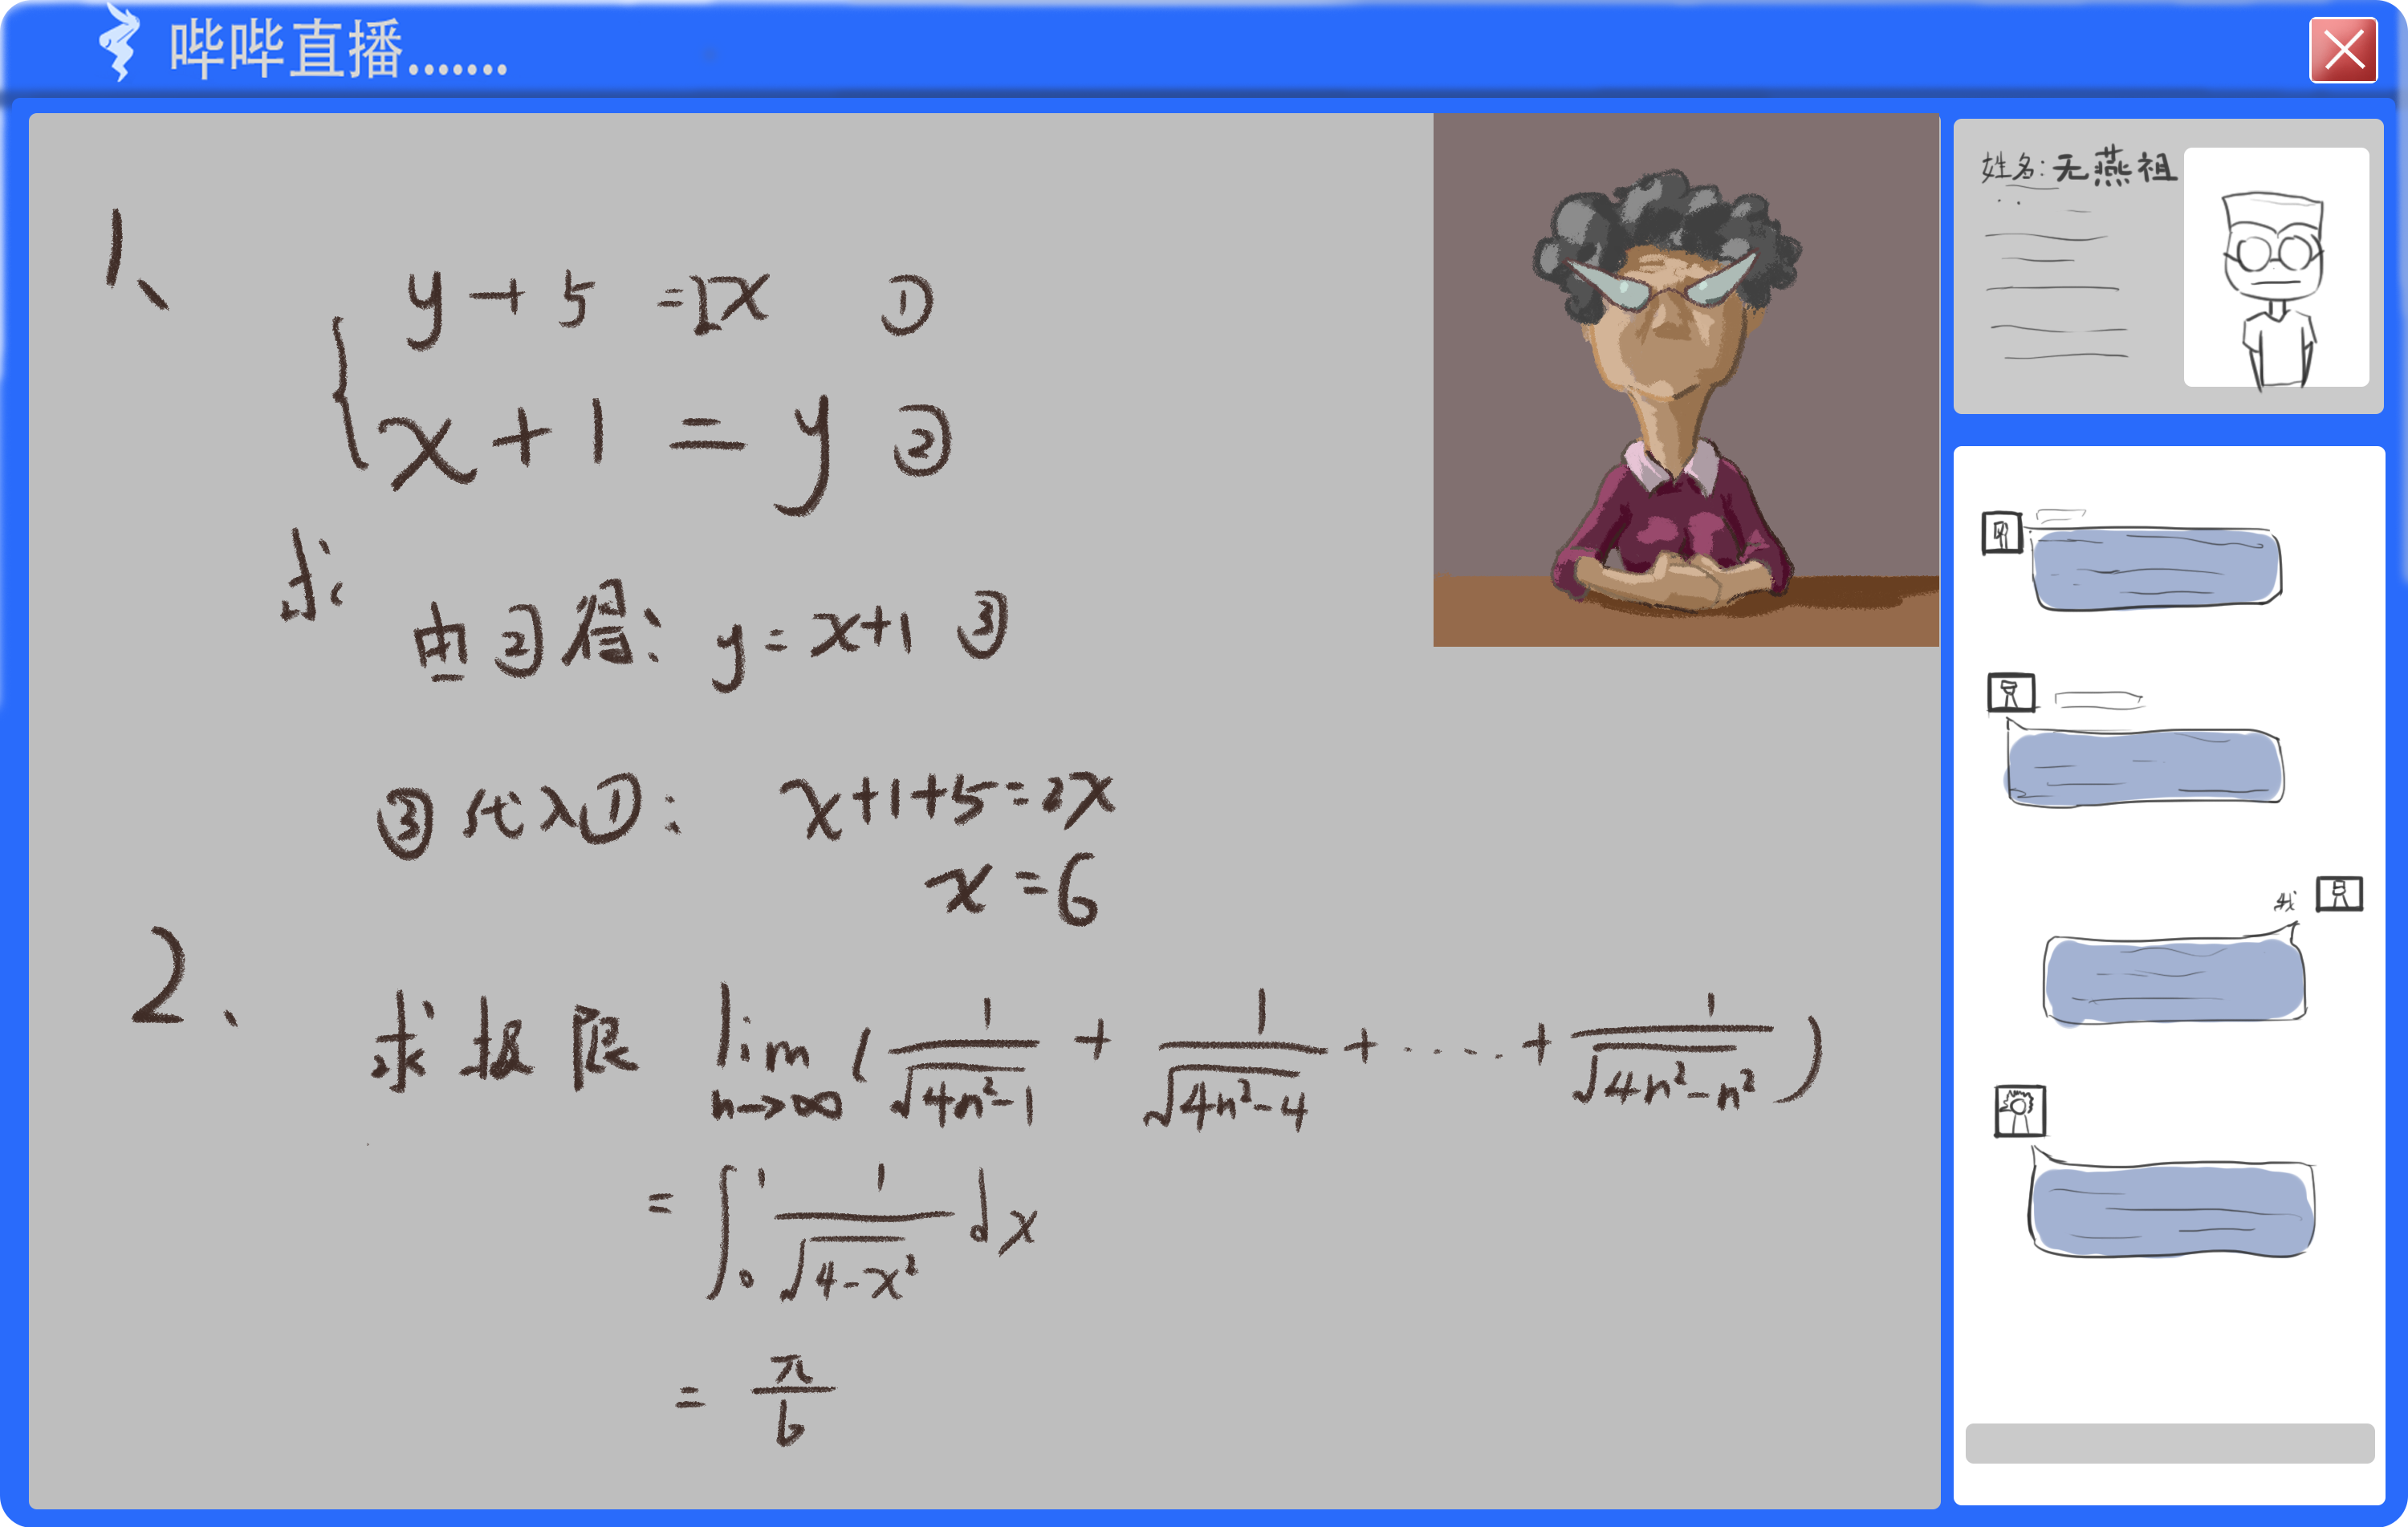 哔哔直播.......
姓名:无燕祖
1、
y+5=2x ①
x+1=y ②
求
由②得: y=x+1 ③
③代入①: x+1+5=2x
x=6
2、
求极限 lim n→∞ (1/√(4n²-1) + 1/√(4n²-4) + ..... + 1/√(4n²-n²))
= ∫₀¹ 1/√(4-x²) dx
= π/6
我